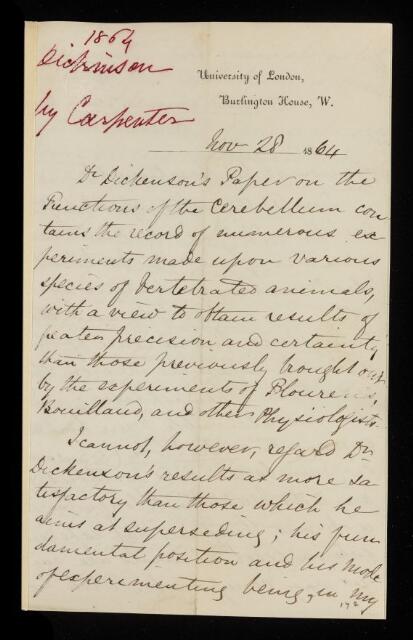 1864
Dickinson
by Carpenter
University of London,
Burlington House, W.
Nov 28 1864
Dr Dickenson's Paper on the
Functions of the Cerebellum con
tains the record of numerous ex
periments made upon various
species of Vertebrated animals,
with a view to obtain results of
greater precision and certainty
than those previously brought out
by the experiments of Flourens,
Bouillaud, and other Physiologists.
I cannot, however, regard Dr
Dickenson's results as more sa
tisfactory than those which he
aims at superseding; his fun
damental position and his mode
of experimenting being, in my